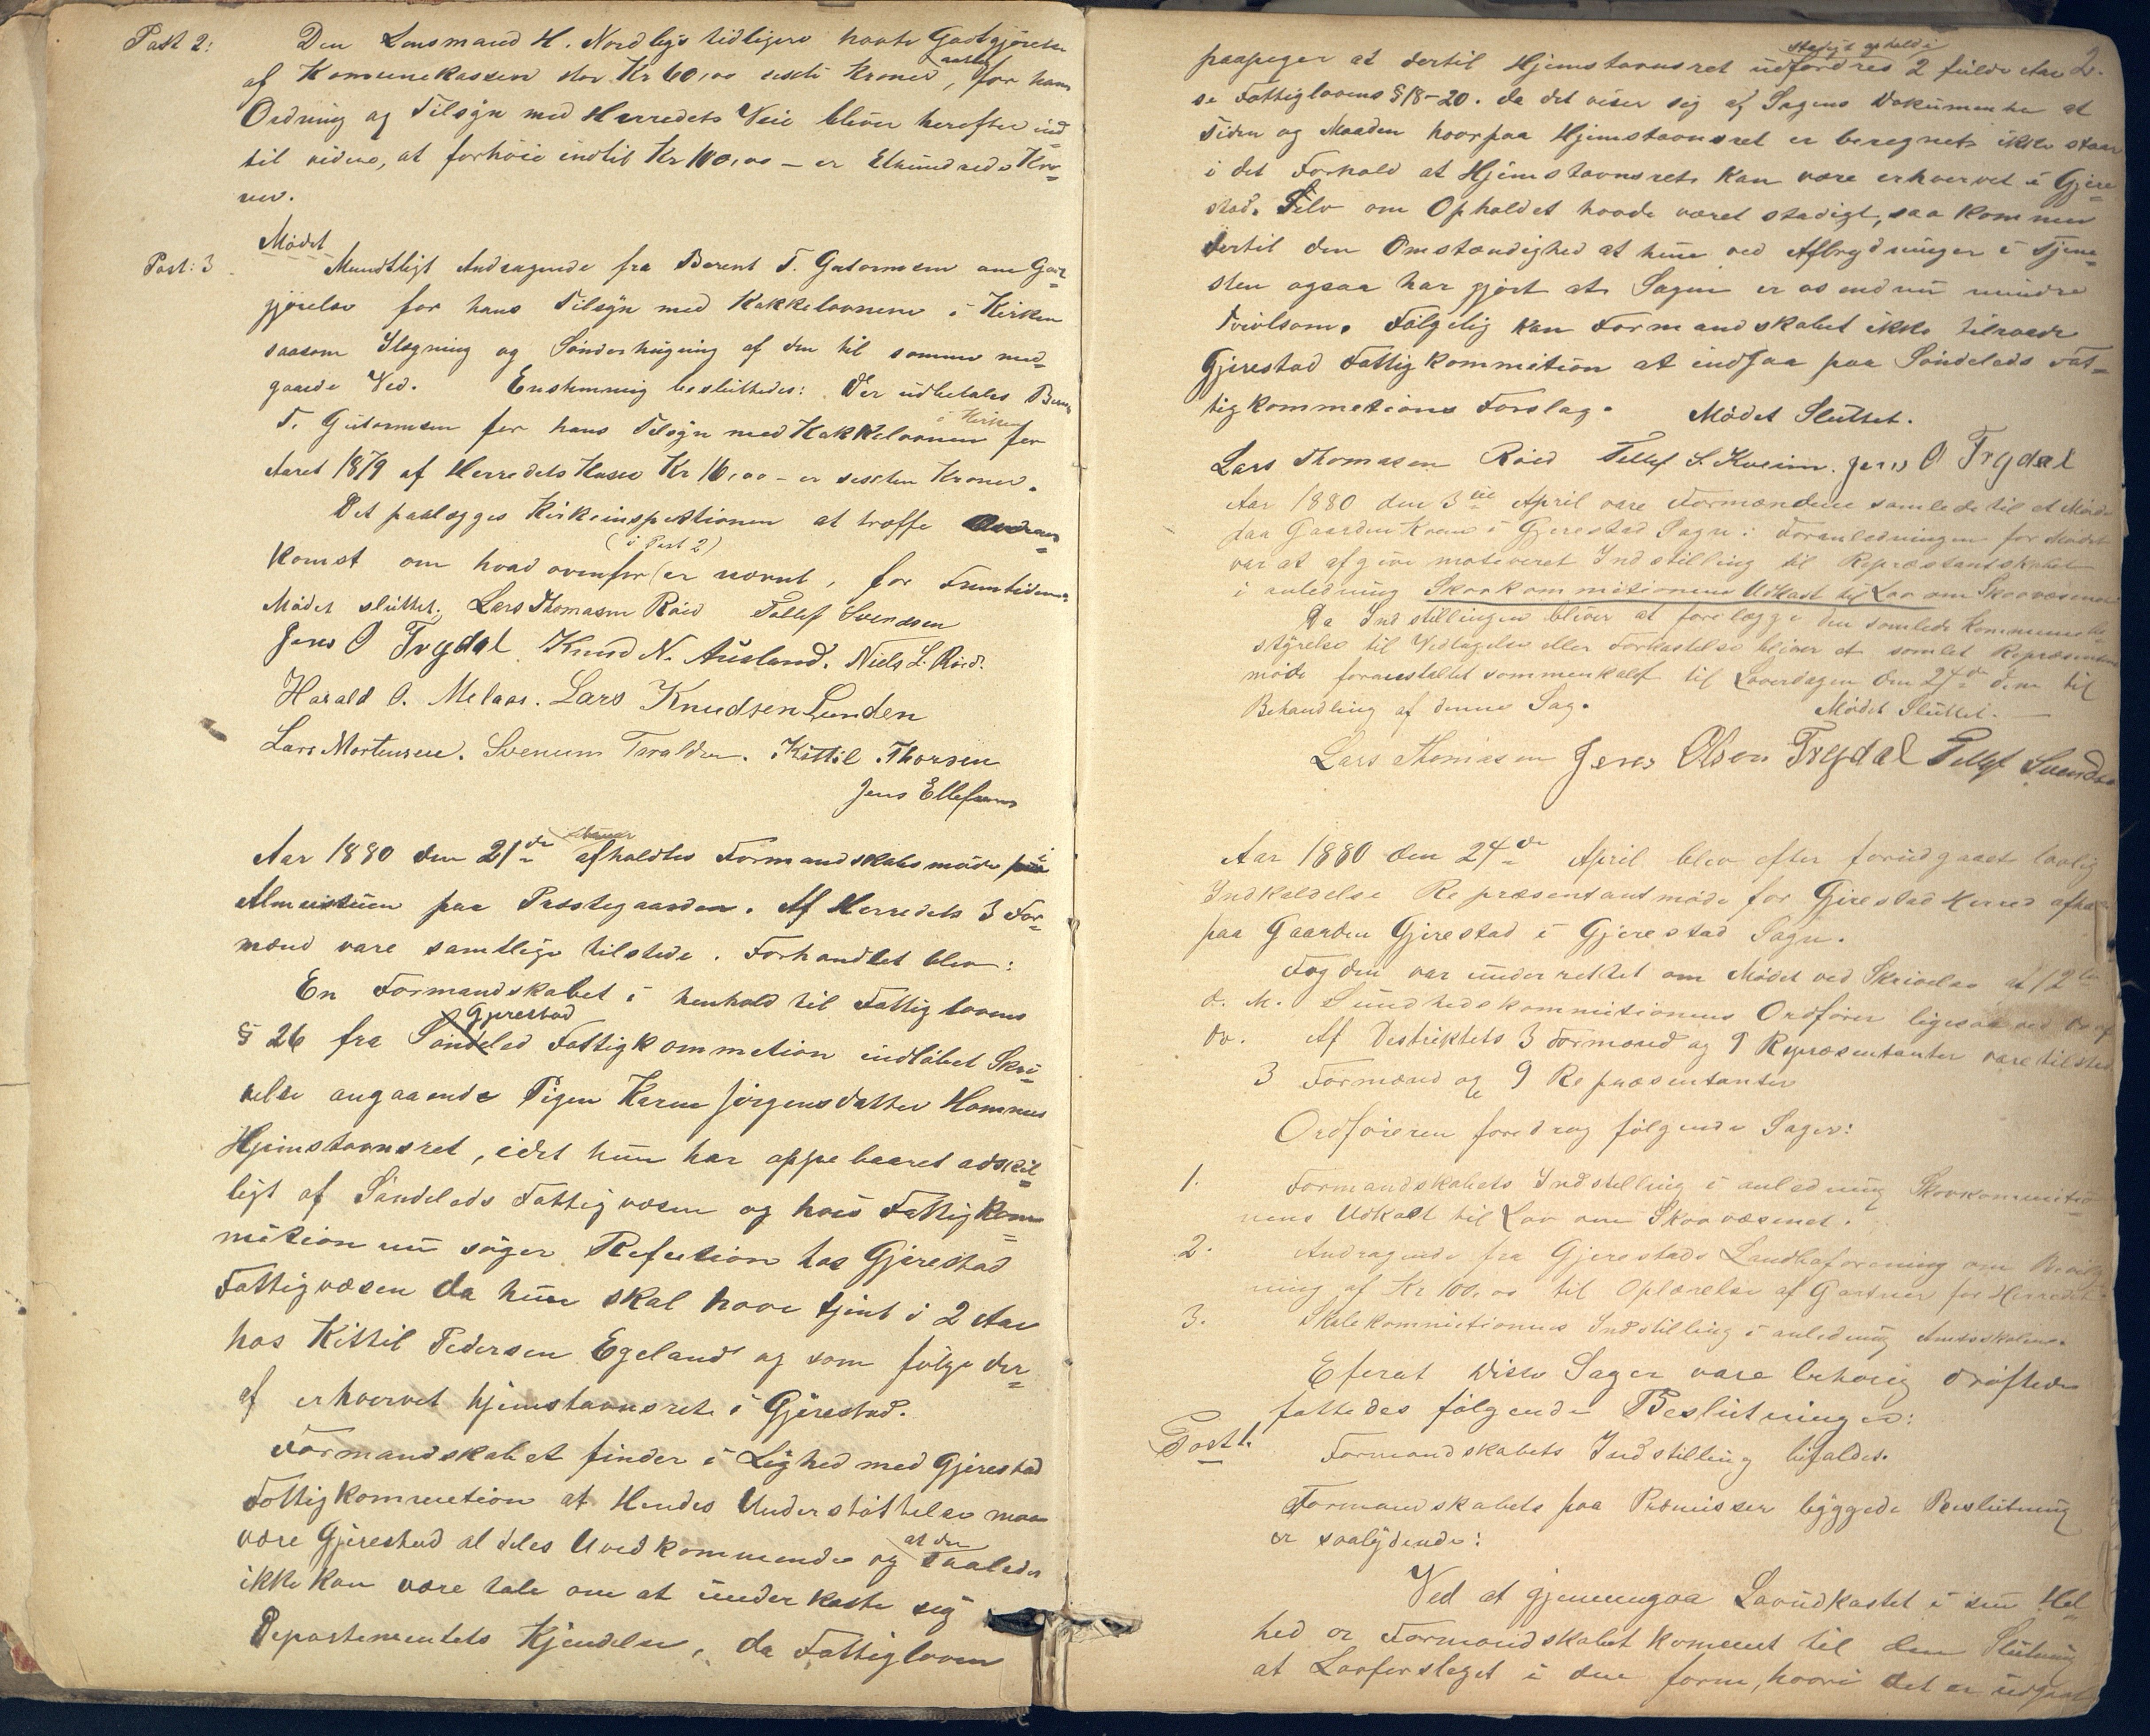 Post 2: Den Lensmand H. Nordlys tidligere havte Godtgjørelse
af Komunekassen stor Kr 60,00 sexti Kroner aarlig, for hans
Ordning og Tilsyn med Herredets Veie bliver herefter ind
til videre, at forhöie indtil Kr 100,00 – er Ethundrede Kro-
ner.
Mödet
Post: 3. Mundtligt Andragende fra Berent T. Gutormsen om God-
gjörelse for hans Tilsyn med Kakkelovnene i Kirken
saasom Ilægning og Sönderhugning af den til samme med-
gaaede Ved. Enstemmig besluttedes: Der udbetales Berent
T. Gutormsen for hans Tilsyn med Kakkelovnene i Kirken for
Aaret 1879 af Herredets Kasse Kr 16,00 – er sexten Kroner.
Det paalægges Kirkeinspektionen at træffe
komst om hvad ovenfor (i Post 2) er nævnt, for Fremtiden.
Mödet sluttet. Lars Thomasen Röed Tellef Svendsen
Jens O Trydal Knud N. Ausland. Niels L. Röed.
Harald O. Melaas. Lars Knudsen Lunden
Lars Mortensen. Svenum Taraldsen. Kittil Thorsen
Jens Ellefsen
Aar 1880 den 21de afholdtes Formandskabsmöde i
Almuestuen paa Præstegaarden. Af Herredets 3 For-
mænd vare samtlige tilstede. Forhandlet blev:
En Formandskabet i henhold til Fattiglovens
§ 26 fra Söndeled Gjerestad Fattigkommetion indlöbet Skri-
velse angaaende Pigen Karen Jörgensdatter Hommes
Hjemstavnsret, idet hun har oppebaaret adskil-
ligt af Söndeleds Fattigvæsen og hvis Fattigkom-
mition nu söger Refution hos Gjerestad
Fattigvæsen da hun skal have tjent i 2 Aar
hos Kittil Pedersen Egeland og som fölge der-
af erhvervet hjemstavnsret i Gjerestad.
Formandskabet finder i Lighed med Gjerestad
Fattigkommetion at Hendes Understöttelse maa
være Gjerestad aldeles Uvedkommende og at der saaledes
ikke kan være tale om at underkaste sig
Departementets Kjendelse, da Fattigloven
2.
paapeger at dertil Hjemstavnsret udfordres stadigt ophold i 2 fulde Aar
se Fattiglovens § 18–20. da det viser sig af Sagens Dokumenter at
Tiden og Maaden hvorpaa Hjemstavnsret er beregnet ikke staar
i det Forhold at Hjemstavnsret kan være erhvervet i Gjere-
stad. Selv om Opholdet havde været stadigt, saa kommer
dertil den Omstændighed at hun ved Afbrydninger i Tjene-
sten ogsaa har gjort at Sagen er os endnu mindre
tvivlsom. Fölgelig kan Formandskabet ikke tilraade
Gjerestad Fattigkommition at indgaa paa Söndeleds Fat-
tigkommetions Forslag. Mödet Sluttet.
Lars Thomasen Röed Tellef S. Kveim. Jens O Trydal
Aar 1880 den 3die April vare Formændene samlede til et Möde
paa Gaarden Kveim i Gjerestad Sogn. Foranledningen for Mödet
var at afgive motiveret Indstilling til Repræsentantskabet
i anledning Skovkommitionens Udkast til Lov om Skovvæsenet
Da Indstillingen bliver at forelægge den samlede Kommunebe-
styrelse til Vedtagelse eller Forkastelse bliver et samlet Repræsentant
möde foranstaltet sammenkaldt til Löverdagen den 24de dennes til
Behandling af denne Sag. Mödet Sluttet. –
Lars Thomasen Jens Olsen Trydal Tellef Svendsen
Aar 1880 den 24de April blev efter forudgaaet lovlig
Indkaldelse Repræsentantmöde for Gjerestad Herred afholdt
paa Gaarden Gjerestad i Gjerestad Sogn.
Fogden var underrettet om Mödet ved Skrivelse af 12te
d. M. Sundhedskommitionens Ordförer ligesaa ved
Af Destriktets 3 Formænd og 9 Repræsentanter vare tilstede
3 Formænd og 9 Repræsentanter
Ordföreren foredrog fölgende Sager:
1. Formandskabets Indstilling i anledning Skovkommitio-
nens Udkast til Lov om Skovvæsenet.
2. Andragende fra Gjerestads Landboforening om Bevilg-
ning af Kr 100,00 til Oplærelse af Gartner for Herredet.
3. Skolekommitionens Indstilling i anledning Amtsskolen.
Efterat disse Sager vare behörig dröftede
fattedes fölgende Beslutninger:
Post 1. Formandskabets Indstilling bifaldes.
Formandskabets paa Præmisser byggede Beslutning
er saalydende:
Ved at gjennemgaa Lovudkastet i sin Hel-
hed er Formandskabet kommet til den Slutning
at Lovforslaget i den form, hvori det er udgaaet